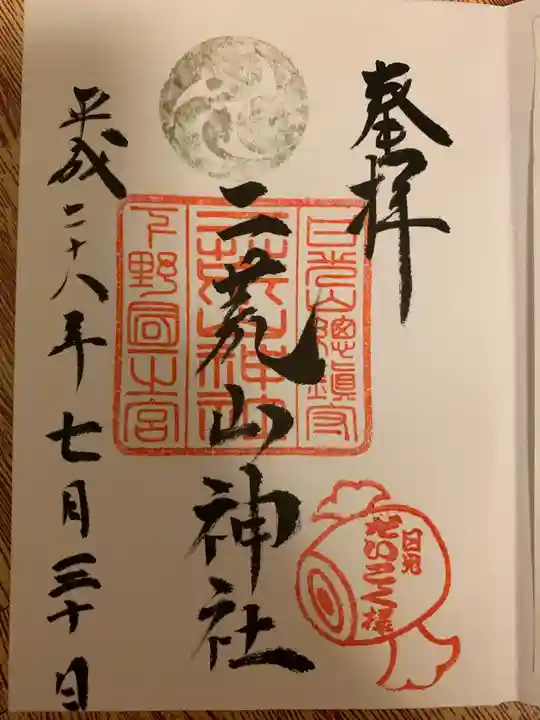 奉拝
日光山總鎮守
二荒山神社
下野國一之宮
二荒山神社
日光
だいこく様
平成二十八年七月三十日